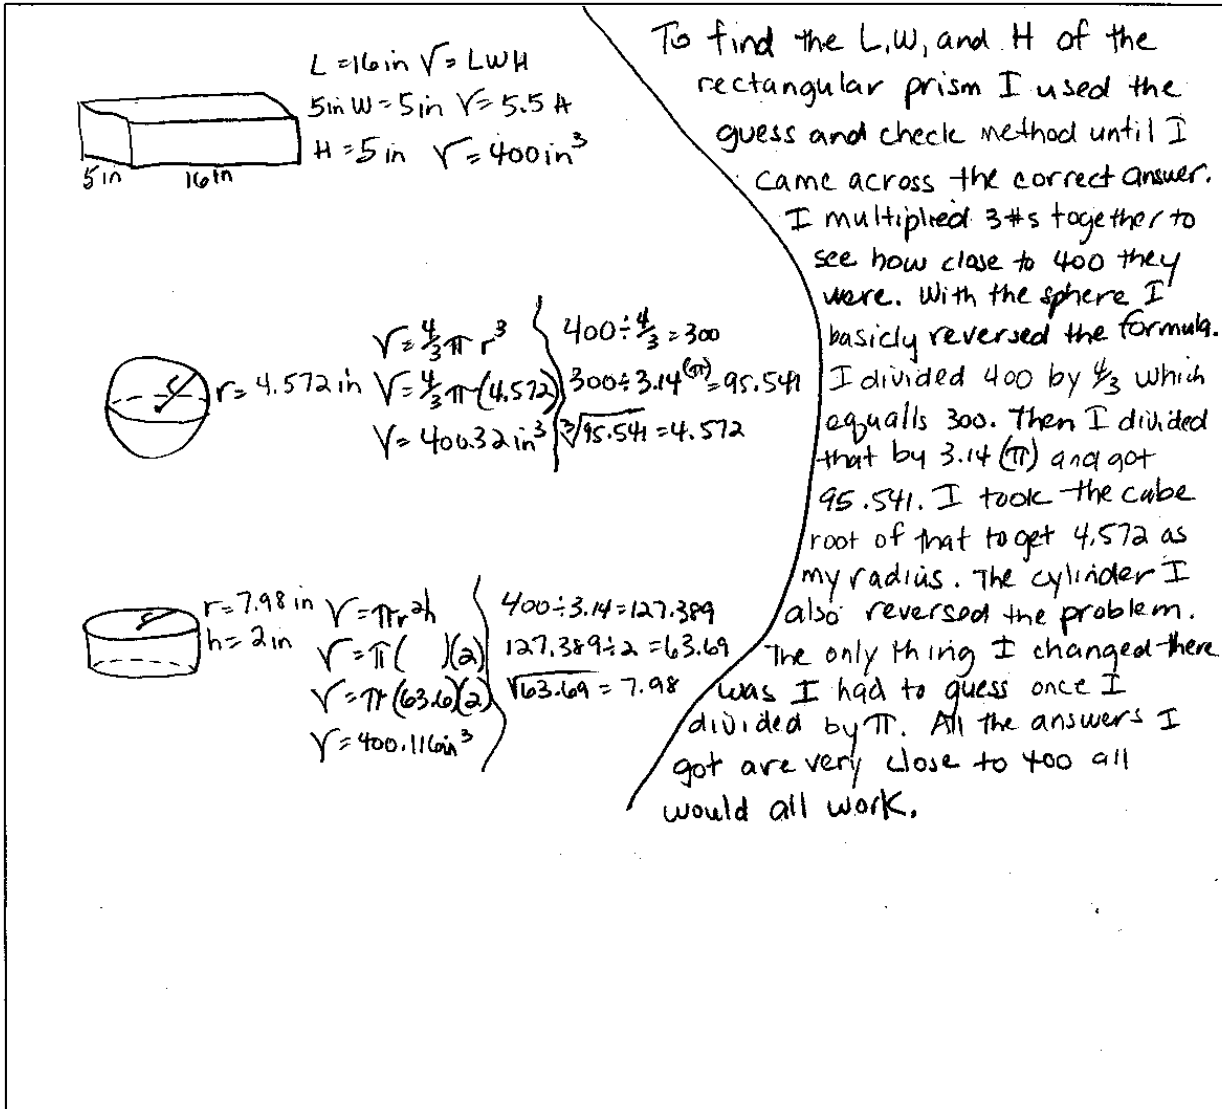 L = 16 in V = LWH
5in W = 5in V = 5.5 A
H = 5 in V = 400 in³
5 in 16 in
V = 4/3 π r³
r = 4.572 in V = 4/3 π (4.572)
V = 400.32 in³
400 ÷ 4/3 = 300
300 ÷ 3.14 (π) = 95.541
∛95.541 = 4.572
r = 7.98 in V = πr²h
h = 2 in V = π( )(2)
V = π (63.6)(2)
V = 400.116in³
400 ÷ 3.14 = 127.389
127.389 ÷ 2 = 63.69
√63.69 = 7.98
To find the L, W, and H of the
rectangular prism I used the
guess and check method until I
came across the correct answer.
I multiplied 3 #s together to
see how close to 400 they
were. With the sphere I
basicly reversed the formula.
I divided 400 by 4/3 which
equalls 300. Then I divided
that by 3.14 (π) and got
95.541. I took the cube
root of that to get 4.572 as
my radius. The cylinder I
also reversed the problem.
The only thing I changed there
was I had to guess once I
divided by π. All the answers I
got are very close to 400 all
would all work.